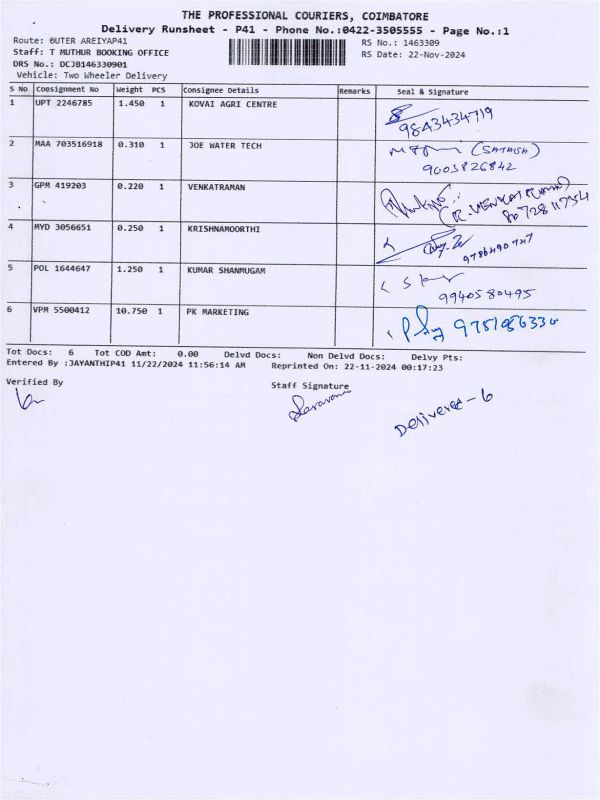 THE PROFESSIONAL COURIERS, COIMBATORE
Delivery Runsheet - P41 - Phone No.:0422-3505555 - Page No.:1
Route: OUTER AREIYAP41
RS No.: 1463309
Staff: T MUTHUR BOOKING OFFICE
RS Date: 22-Nov-2024
DRS No.: DCJB146330901
Vehicle: Two Wheeler Delivery
S No Consignment No Weight PCS Consignee Details Remarks Seal & Signature
1 UPT 2246785 1.450 1 KOVAI AGRI CENTRE
9843434719
2 MAA 703516918 0.310 1 JOE WATER TECH (SATHISH)
9003826842
3 GPM 419203 0.220 1 VENKATRAMAN
4 MYD 3056651 0.250 1 KRISHNAMOORTHI
9786490747
5 POL 1644647 1.250 1 KUMAR SHANMUGAM
9940580495
6 VPM 5500412 10.750 1 PK MARKETING
Tot Docs: 6 Tot COD Amt: 0.00 Delvd Docs: Non Delvd Docs: Delvy Pts:
Entered By :JAYANTHIP41 11/22/2024 11:56:14 AM Reprinted On: 22-11-2024 00:17:23
Verified By
Staff Signature
Saravanan
Delivered - 6